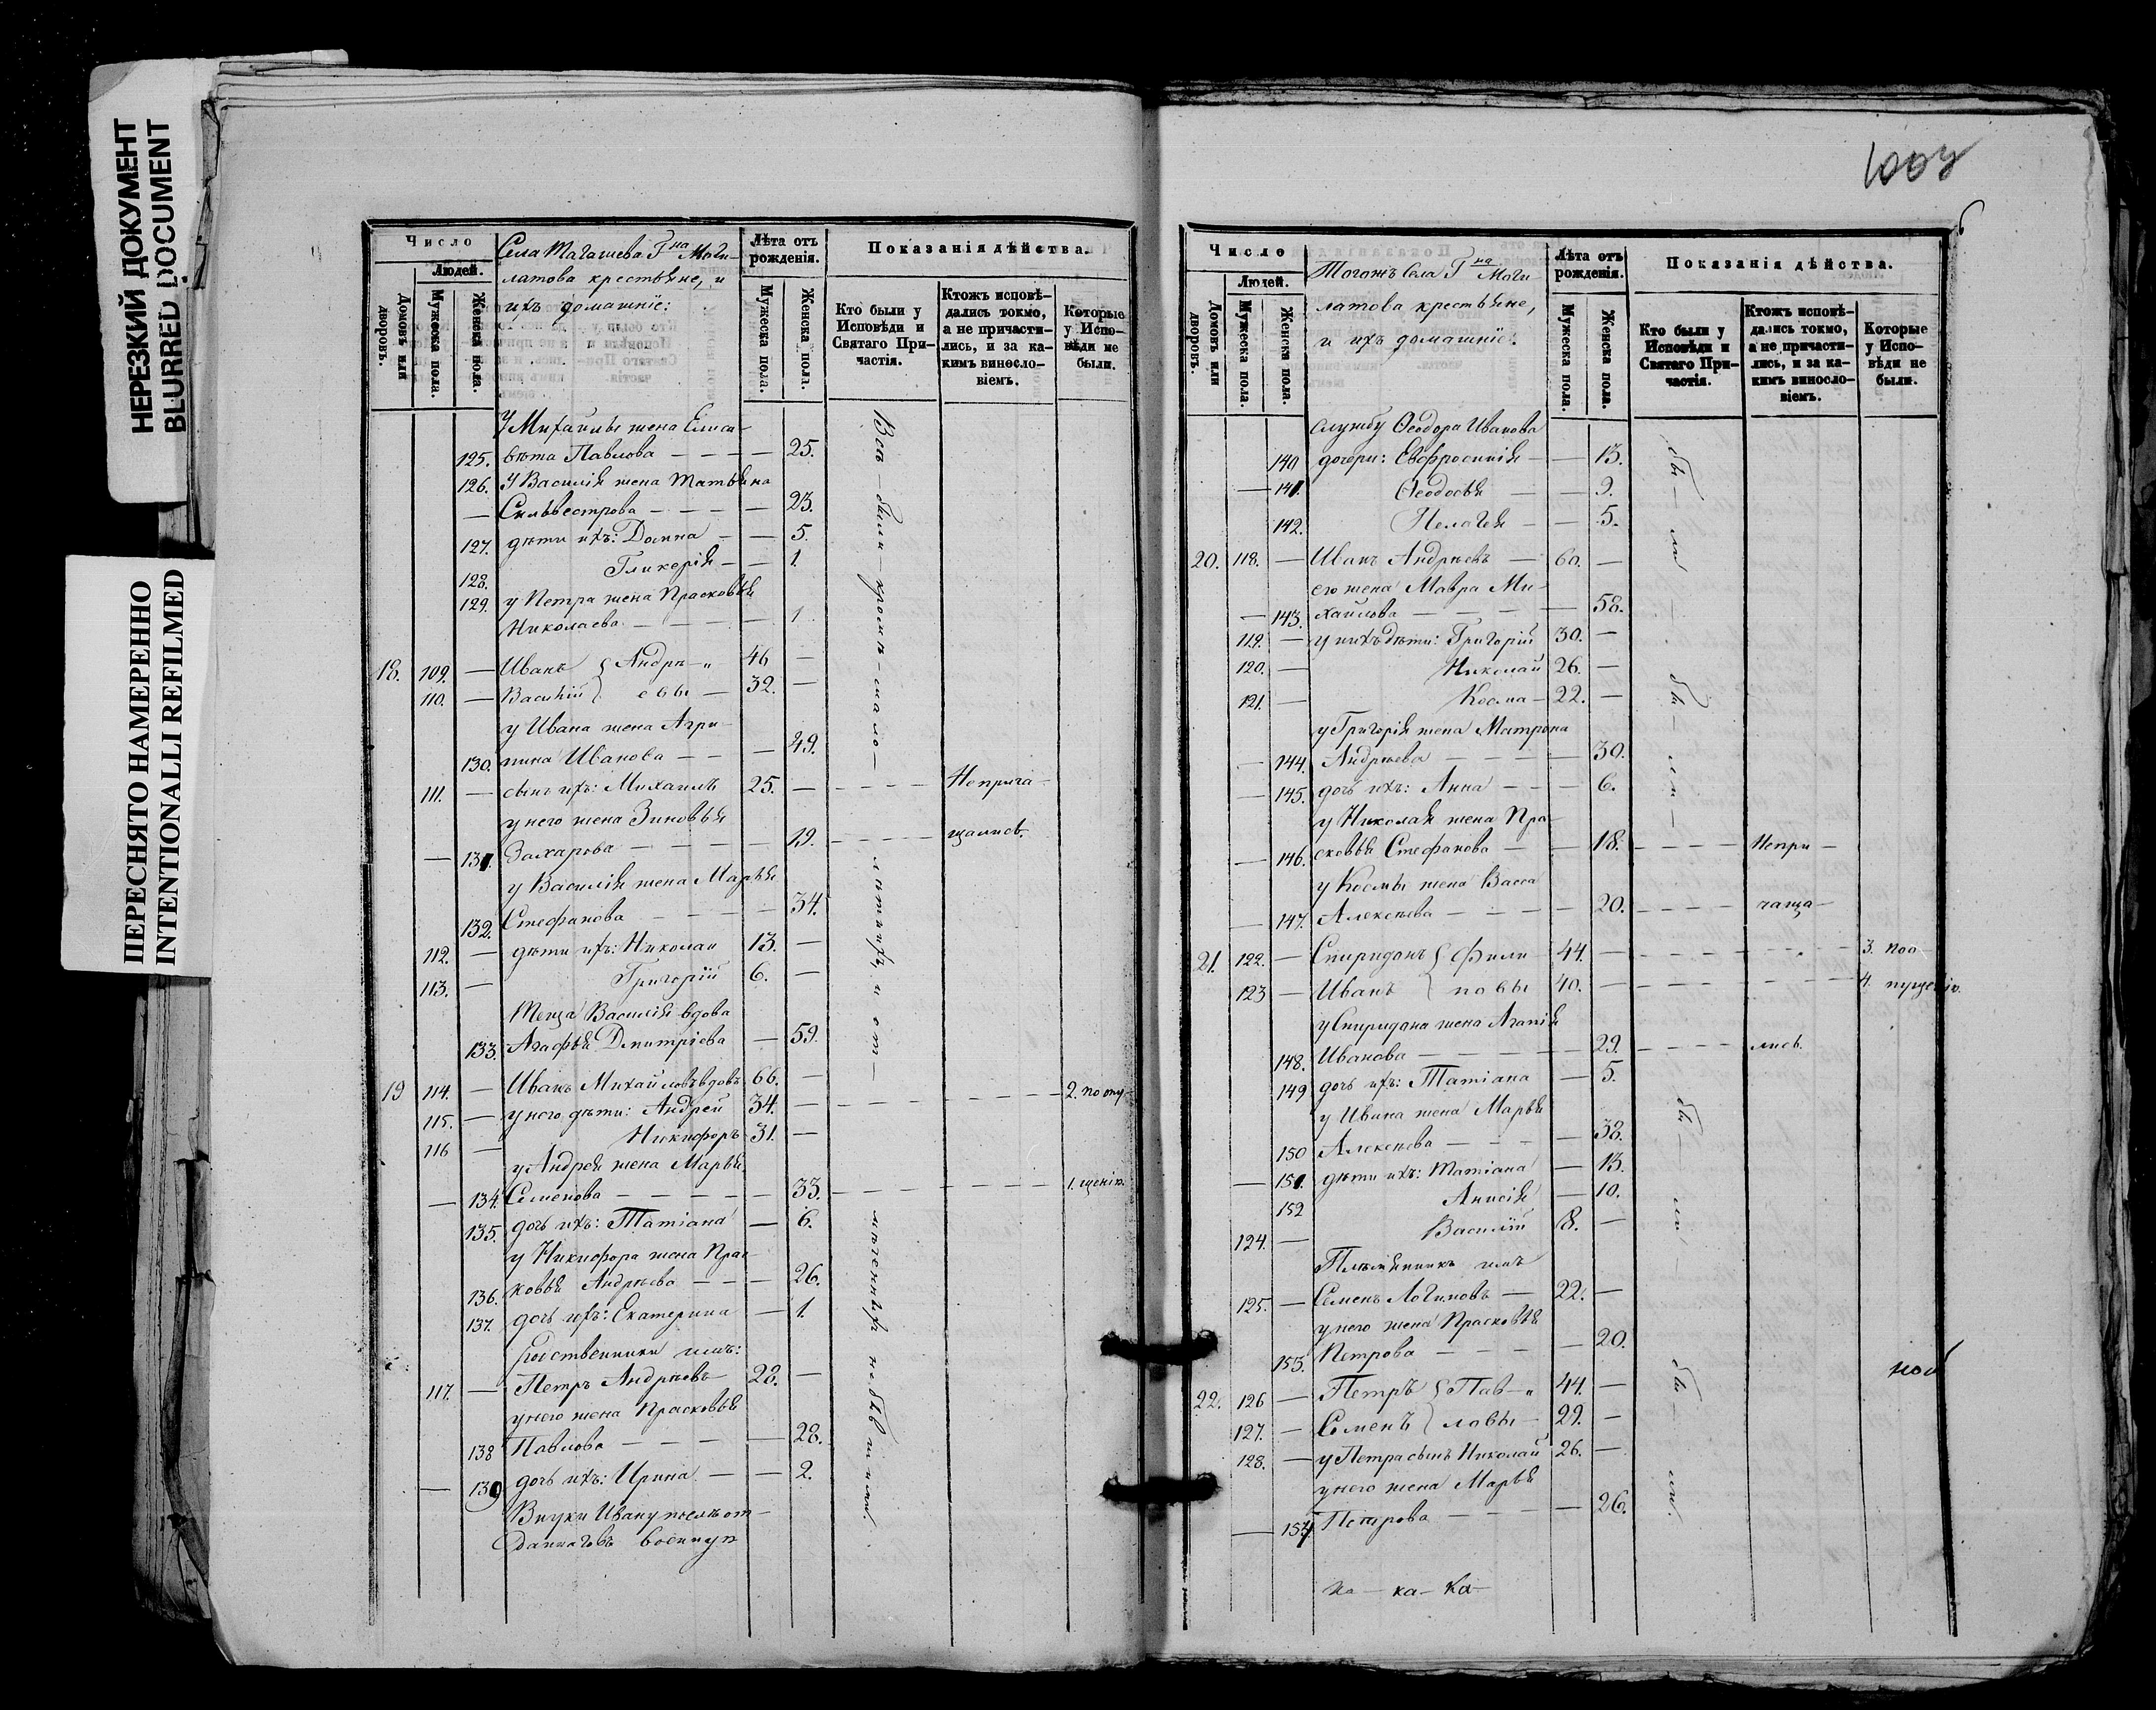 НЕРЕЗКИЙ ДОКУМЕНТ
BLURRED DOCUMENT
ПЕРЕСНЯТО НАМЕРЕННО
INTENTIONALLI REFILMED
Число
Людей.
Домовъ или дворовъ.
Мужеска пола.
Женска пола.
Села
крестьяне, и
ихъ домашніе:
Лѣта отъ рожденія.
Мужеска пола.
Женска пола.
Показанія дѣйства.
Кто были у Исповѣди и Святаго Причастія.
Ктожъ исповѣдались токмо, а не причастились, и за какимъ винословіемъ.
Которые у Исповѣди не были.
У Михаила жена Елиса-
125. вѣта Павлова — 25.
126. У Василія жена Татьяна
Сильвестрова — 23.
127. дѣти ихъ: Домна — 5.
128. Гликерія — 1.
129. у Петра жена Прасковья
Николаева — 1
18. 109. — Иванъ { Андрѣ- 46 —
110. — Василій } евы — 32. —
у Ивана жена Агри-
130. пина Иванова — 49.
111. — сынъ ихъ: Михаилъ 25. — Неприча-
у него жена Зиновья
131. Захарова — 19. щались.
у Василія жена Марья
132. Стефанова — 34.
112. — дѣти ихъ: Николай 13. —
113. — Григорій 6. —
Теща Василія вдова
133. Агафья Дмитріева — 59.
19 114. — Иванъ Михайловъ вдовъ 66. —
115. — у него дѣти: Андрей 34. — 2. по опу-
116 — Никифоръ 31. —
у Андрея жена Марья
134. Семенова — 33. 1. щенію.
135. дочь ихъ: Татіана — 6.
у Никифора жена Прас-
136. ковья Андрѣева — 26.
137. дочь ихъ: Екатерина — 1.
Родственники имъ:
117. — Петръ Андрѣевъ 28. —
у него жена Прасковья
138 Павлова — 28.
139 дочь ихъ: Ирина — 2.
Внуки Ивану
военную
Всѣ — были — кромѣ — мало —
лѣтнихъ, и от —
мѣченныхъ небывшими.
Число
Людей.
Домовъ или дворовъ.
Мужеска пола.
Женска пола.
Тогожъ села
крестьяне,
и ихъ домашніе:
Лѣта отъ рожденія.
Мужеска пола.
Женска пола.
Показанія дѣйства.
Кто были у Исповѣди и Святаго Причастія.
Ктожъ исповѣдались токмо, а не причастились, и за какимъ винословіемъ.
Которые у Исповѣди не были.
службу Ѳеодора Иванова
140 дочери: Евфросинія — 13.
141. Ѳеодосья — 9.
142. Пелагея — 5.
20. 118. — Иванъ Андрѣевъ — 60. —
его жена Мавра Ми-
143. хайлова — 58.
119. — у нихъ дѣти: Григорій 30. —
120. — Николай 26. —
121. — Косма — 22. —
у Григорія жена Матрона
144. Андрѣева — 30.
145. дочь ихъ: Анна — 6.
у Николая жена Пра-
146. сковья Стефанова — 18. Непри-
у Космы жена Васса
147. Алексѣева — 20. чаща-
21. 122. — Спиридонъ { Фили- 44. — 3. поо
123 — Иванъ } повы 40. — 4. пущенію.
у Спиридона жена Агапія
148. Иванова — 29. лись.
149 дочь ихъ: Татіана — 5.
у Ивана жена Марья
150 Алексѣева — 38.
151. дѣти ихъ: Татіана — 13.
152 Анисія — 10.
124. — Василій 8. —
Племянникъ имъ
125. — Семенъ Логиновъ — 22. —
у него жена Прасковья
153. Петрова — 20.
22. 126 — Петръ { Пав- 44. —
127. — Семенъ } ловы 29. —
128. — у Петра сынъ Николай 26. —
у него жена Марья
154 Петрова — 26.
ка — ка — ка —
бы — ли —
бы — ли —
бы — ли —
бы — ли.